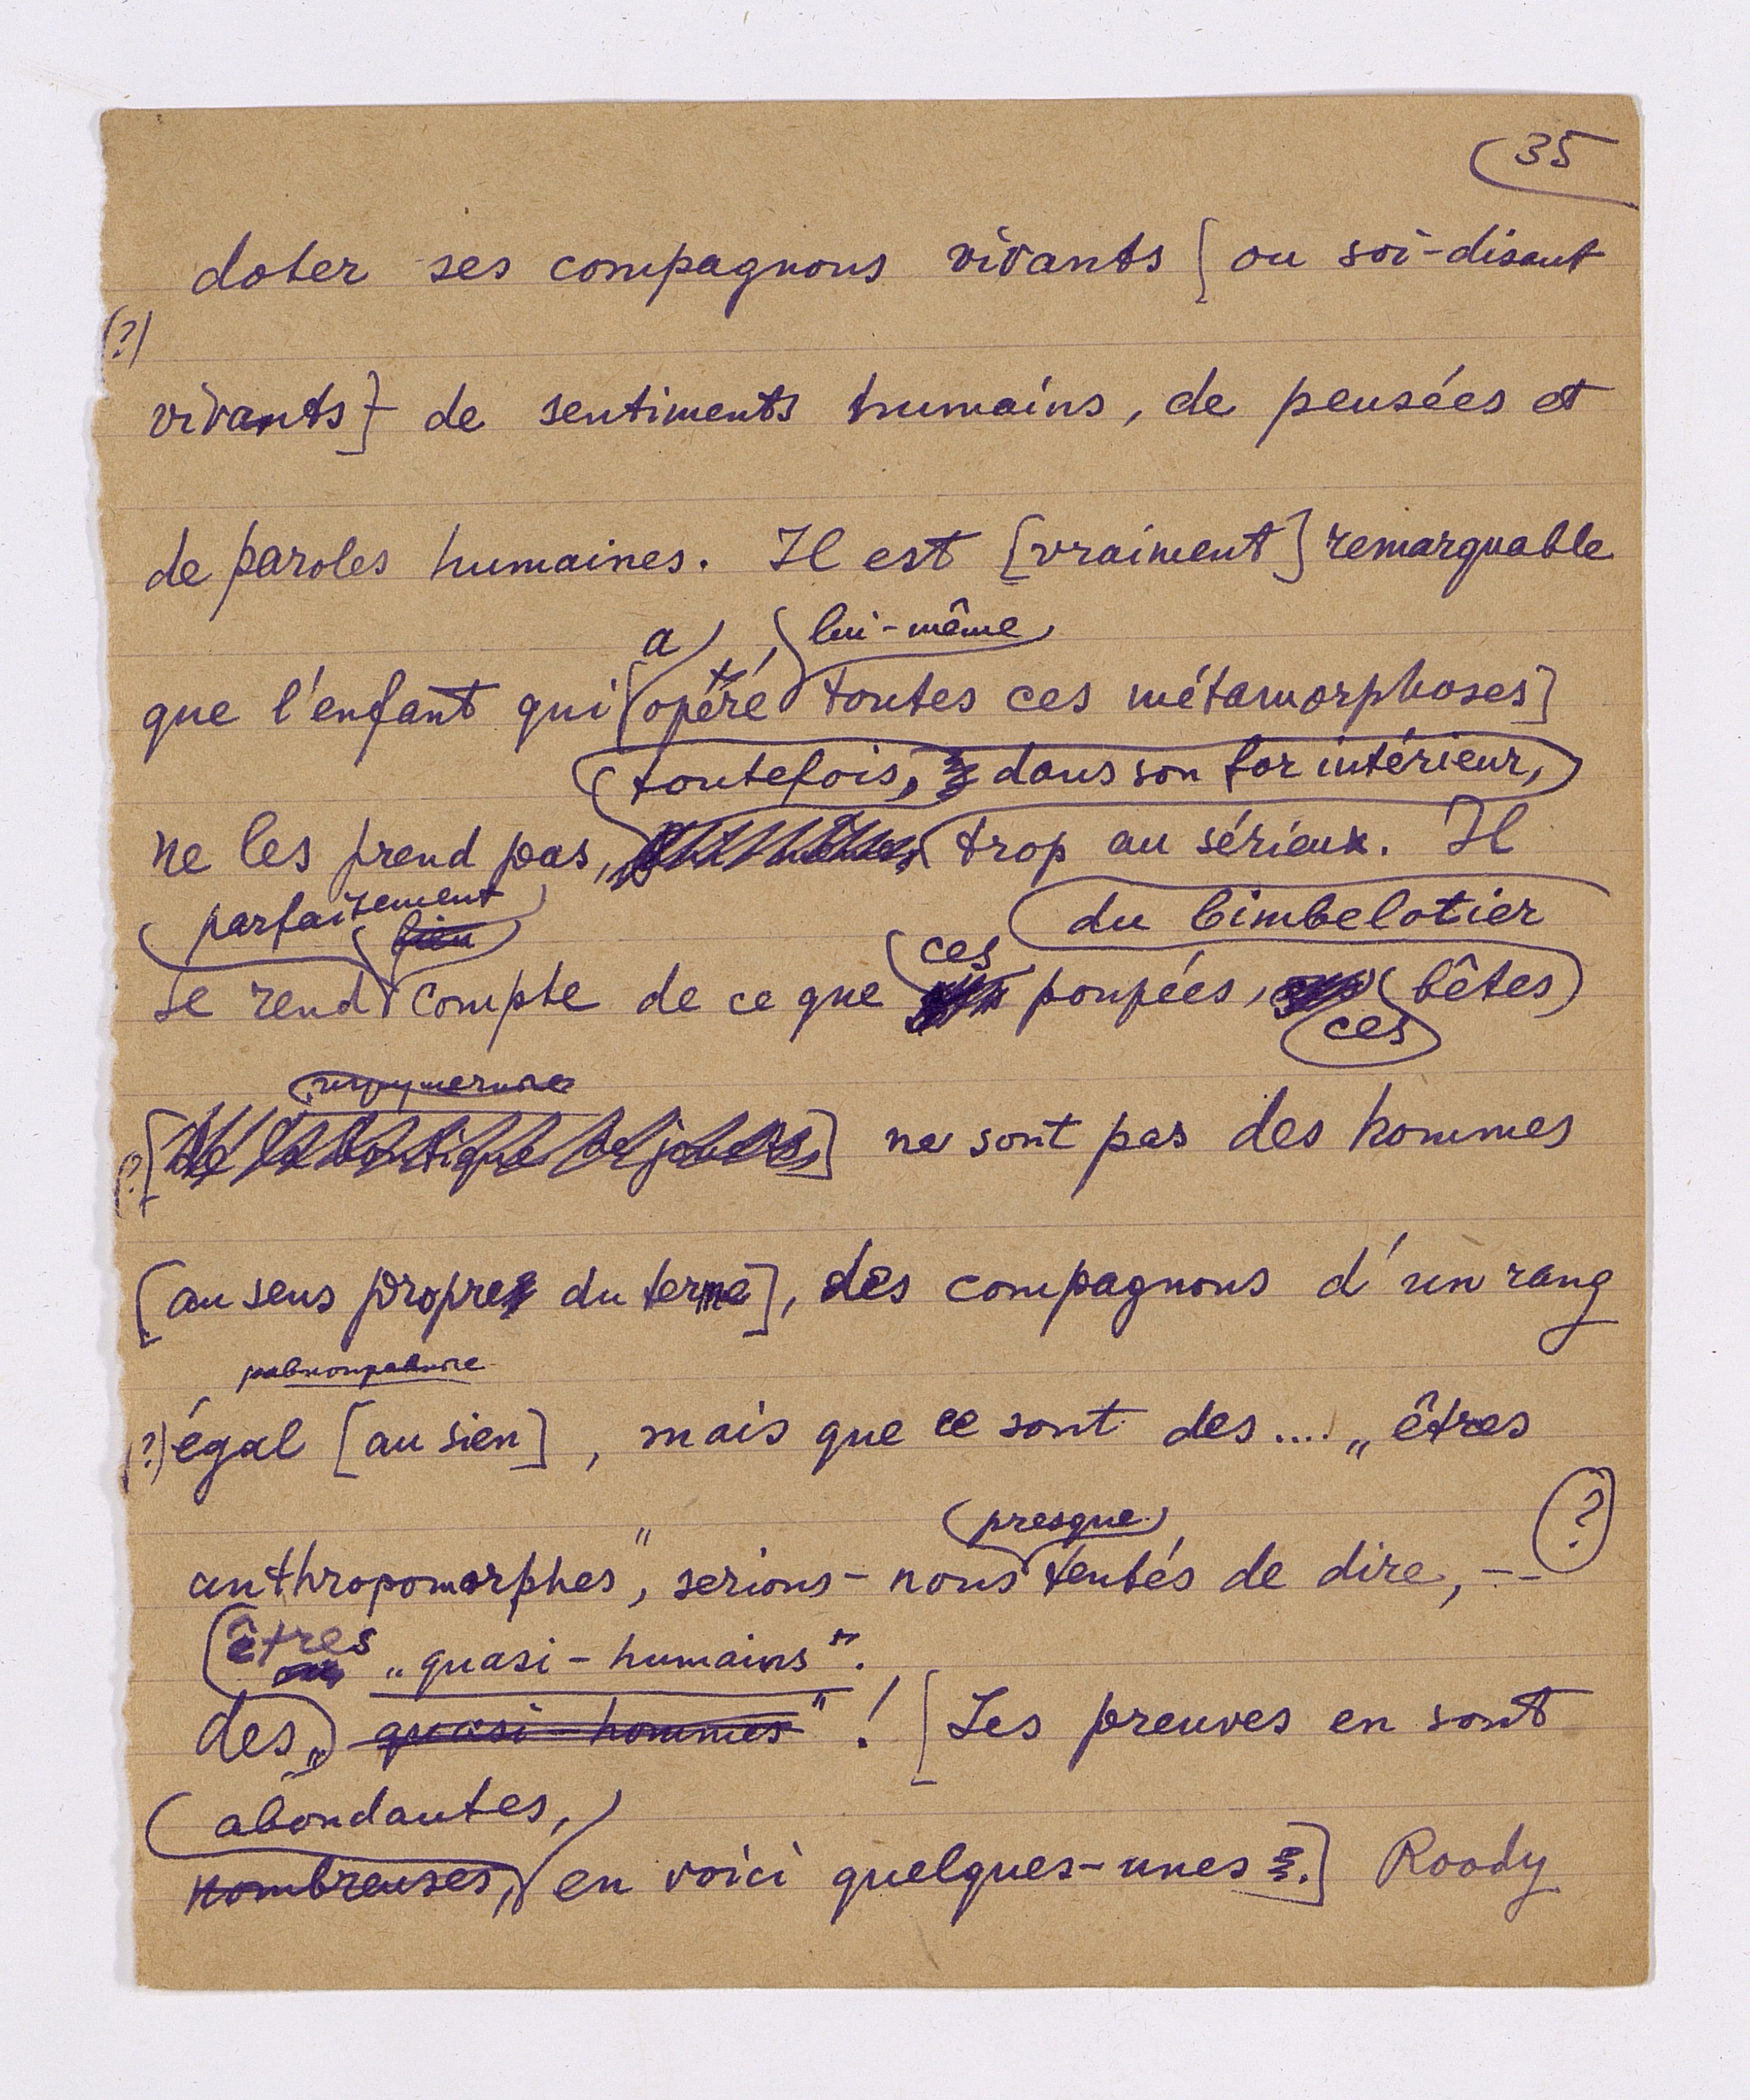 35
doter ses compagnons vivants [ou soi-disant
(?)
vivants] de sentiments humains, de pensées et
de paroles humaines. Il est [vraiment] remarquable
a lui-même
que l'enfant qui [opéré toutes ces métamorphoses]
toutefois, dans son for intérieur,
ne les prend pas, trop au sérieux. Il
parfaitement bien du bimbelotier
ces
se rend compte de ce que poupées, bêtes
ces
? [de la boutique de jouets] ne sont pas des hommes
[au sens propre du terme], des compagnons d'un rang
равноправные
(?) égal [au sien], mais que ce sont des.... „êtres
presque ?
anthropomorphes", serions-nous tentés de dire, --
êtres „quasi-humains".
des „quasi-hommes"! [Les preuves en sont
abondantes,
nombreuses, en voici quelques-unes.] Roody